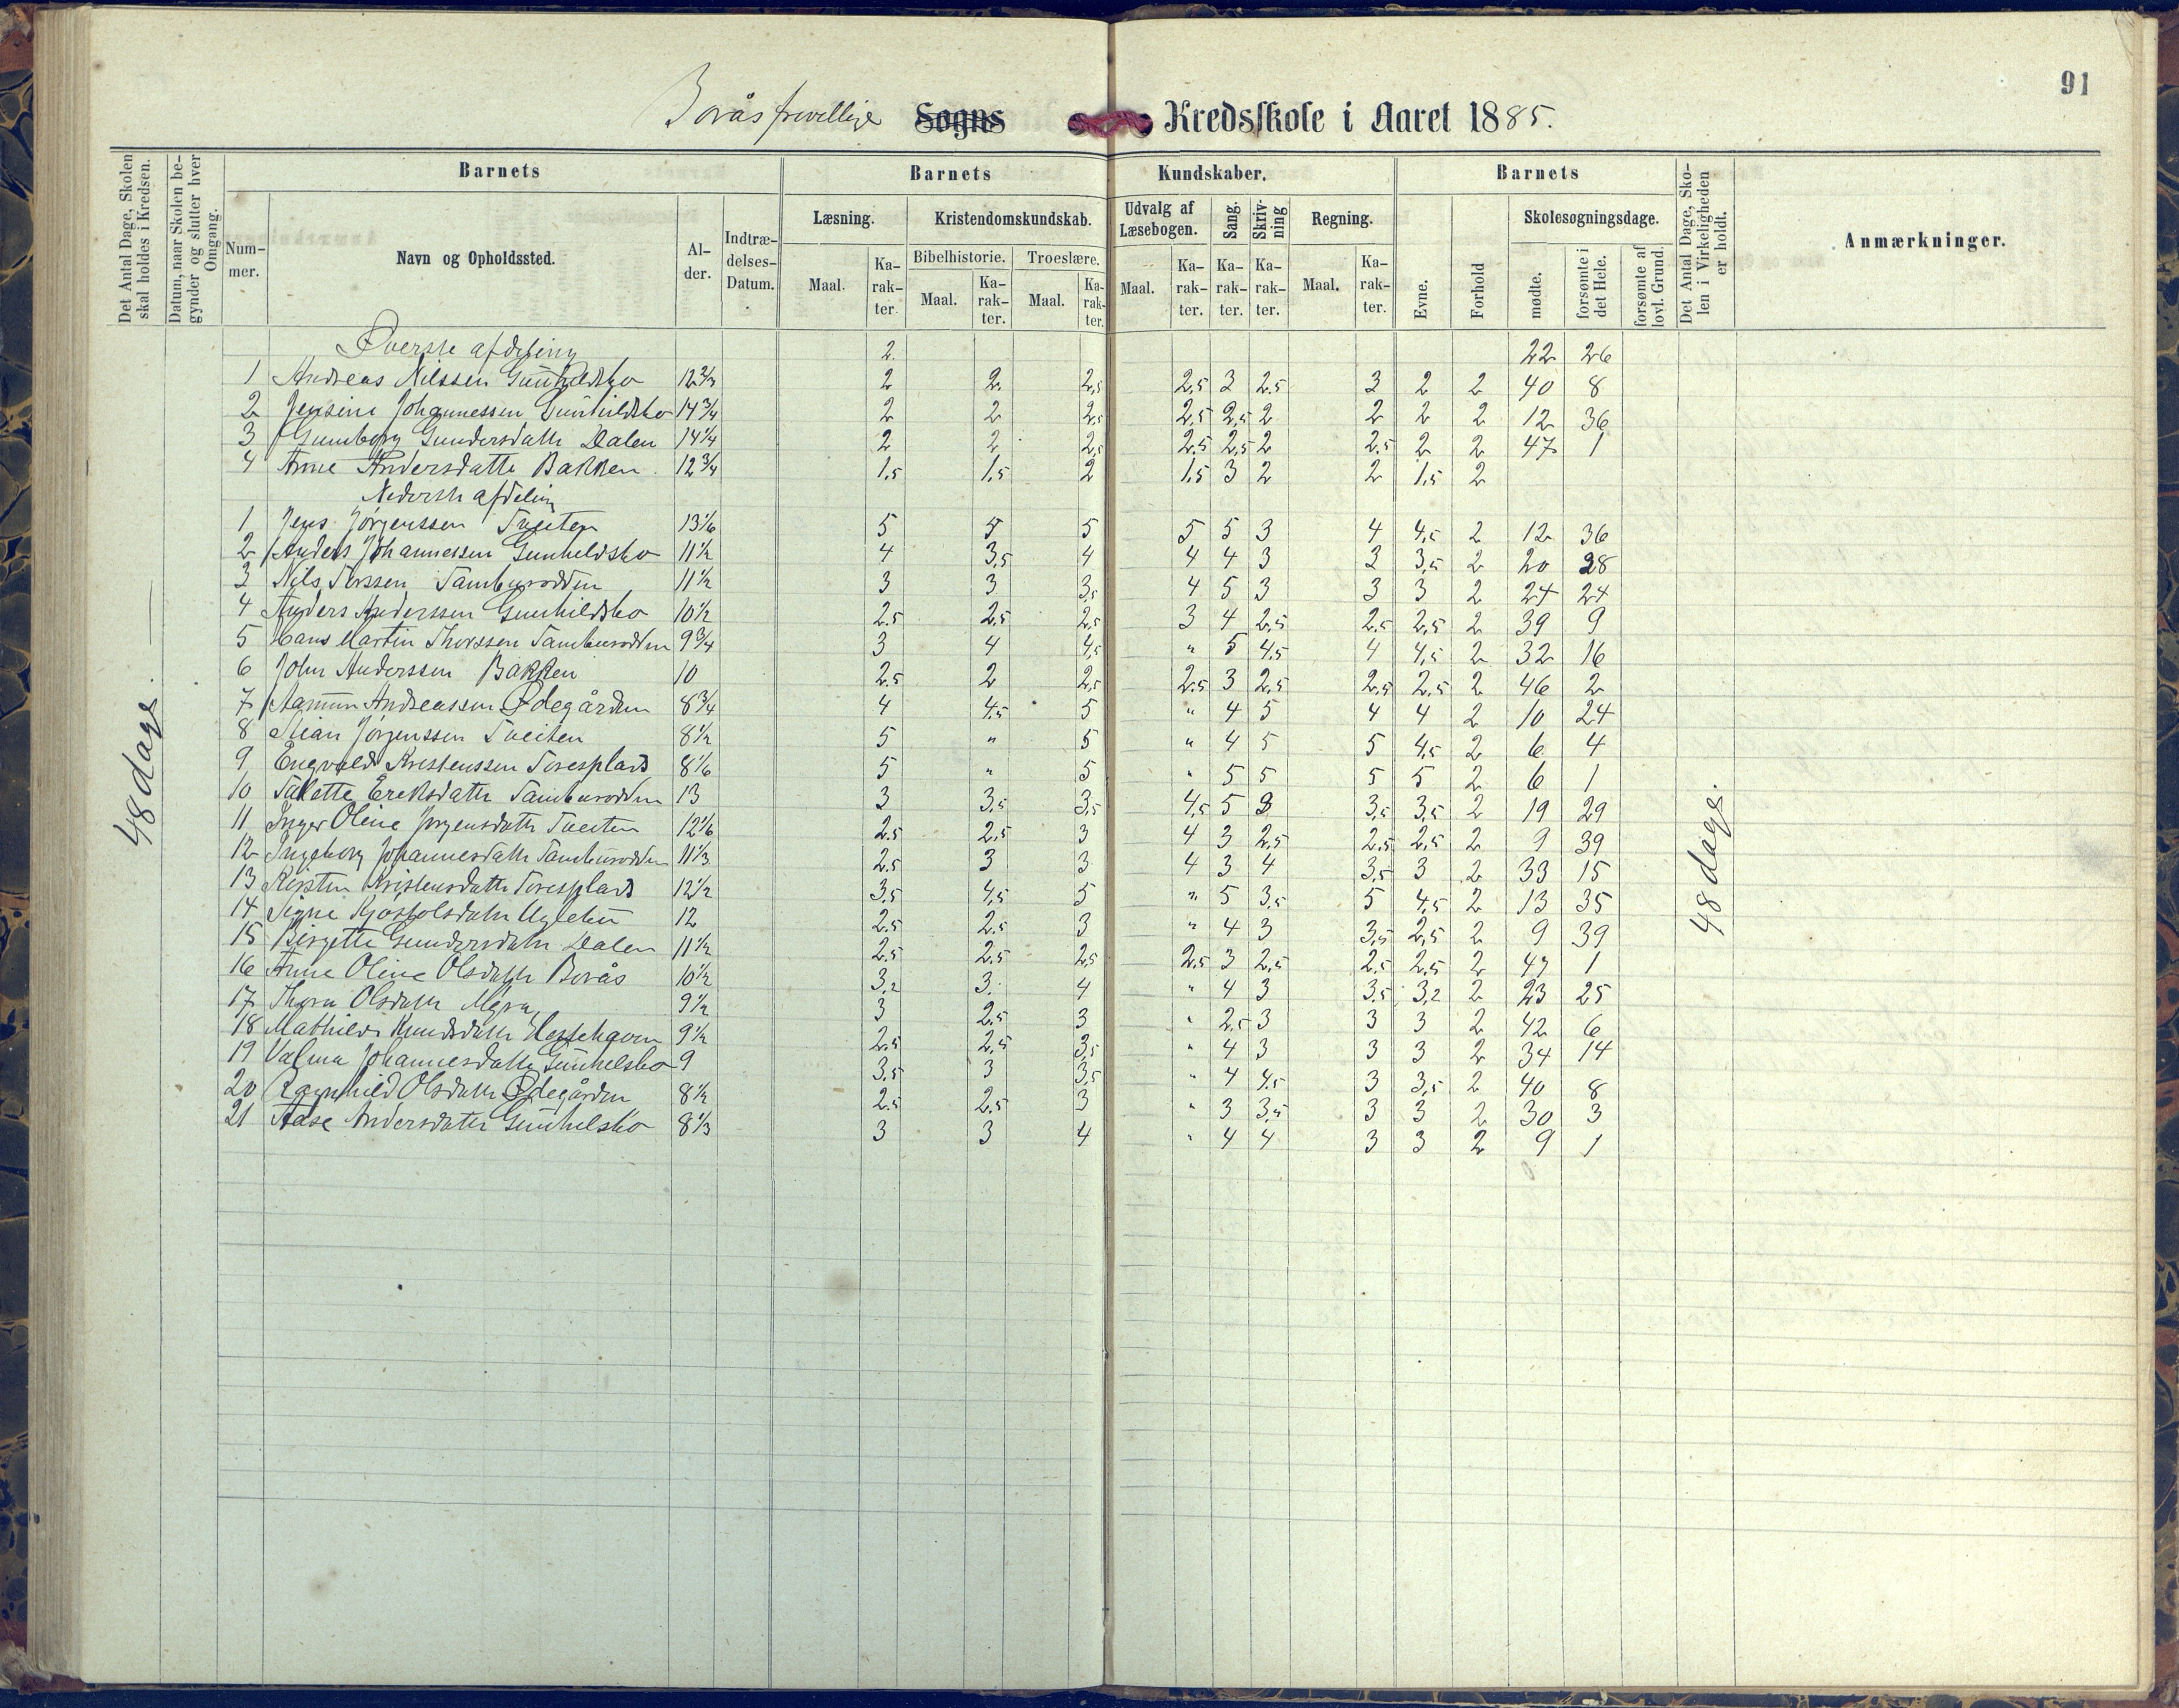 91
Borås frivillige Sogns Kredsskole i Aaret 1885.
Det Antal Dage, Skolen skal holdes i Kredsen.
Datum, naar Skolen begynder og slutter hver Omgang.
Barnets
Nummer.
Navn og Opholdssted.
Alder.
Indtrædelses-Datum.
Barnets Kundskaber.
Læsning.
Maal. Karakter.
Kristendomskundskab.
Bibelhistorie. Troeslære.
Maal. Karakter. Maal. Karakter.
Udvalg af Læsebogen.
Maal. Karakter.
Sang. Karakter.
Skrivning Karakter.
Regning.
Maal. Karakter.
Barnets
Evne. Forhold
Skolesøgningsdage.
mødte. forsømte i det Hele. forsømte af lovl. Grund.
Det Antal Dage, Skolen i Virkeligheden er holdt.
Anmærkninger.
48 dage.
48 dage.
Øverste afdeling 2. 22 26
1 Andreas Nilssen Gunhildsbo 12 2/3 2 2 2,5 2,5 3 2.5 3 2 2 40 8
2 Jensine Johannessen Gunhildsbo 14 3/4 2 2 2,5 2,5 2,5 2 2 2 2 12 36
3 Gunnborg Gundersdatte Dalen 14 1/4 2 2 2,5 2.5 2,5 2 2.5 2 2 47 1
4 Anne Andersdatte Bakken 12 3/4 1,5 1,5 2 1,5 3 2 2 1,5 2
Nederste afdeling
1 Jens Jørgenssen Tveiten 13 1/6 5 5 5 5 5 3 4 4,5 2 12 36
2 Anders Johannessen Gunheldsbo 11 1/2 4 3,5 4 4 4 3 3 3,5 2 20 28
3 Nils Torssen Tamburodden 11 1/2 3 3 3,5 4 5 3 3 3 2 24 24
4 Anders Anderssen Gunhildsbo 10 1/2 2.5 2,5 2,5 3 4 2,5 2,5 2,5 2 39 9
5 Hans Martin Thorssen Tamburodden 9 3/4 3 4 4,5 " 5 4,5 4 4,5 2 32 16
6 John Anderssen Bakken 10 2.5 2 2,5 2.5 3 2,5 2,5 2,5 2 46 2
7 Aamun Andreassen Ødegården 8 3/4 4 4.5 5 " 4 5 4 4 2 10 24
8 Stian Jørgenssen Tveiten 8 1/2 5 " 5 " 4 5 5 4,5 2 6 4
9 Engvald Kristenssen Toresplads 8 1/6 5 " 5 " 5 5 5 5 2 6 1
10 Talette Ereksdatte Tamburodden 13 3 3,5 3,5 4,5 5 3 3,5 3,5 2 19 29
11 Inger Oline Jørgensdatte Tveiten 12 1/6 2.5 2,5 3 4 3 2,5 2,5 2,5 2 9 39
12 Ingeborg Johannesdatte Tamburodden 11 1/3 2.5 3 3 4 3 4 3,5 3 2 33 15
13 Kirsten Kristensdatte Toresplads 12 1/2 3,5 4,5 5 " 5 3,5 5 4,5 2 13 35
14 Signe 12 2.5 2.5 3 " 4 3 3,5 2,5 2 9 39
15 Birgette Gundersdatte Dalen 11 1/2 2.5 2.5 2,5 2,5 3 2,5 2,5 2,5 2 47 1
16 Anne Oline Olsdatte Borås 10 1/2 3,2 3. 4 " 4 3 3,5 3,2 2 23 25
17 Thora Olsdatte Myra 9 1/2 3 2.5 3 " 2,5 3 3 3 2 42 6
18 Mathilde Knudsdatte Hestehaven 9 1/2 2.5 2,5 3,5 " 4 3 3 3 2 34 14
19 Valma Johannesdatte Gunhelsbo 9 3,5 3 3,5 " 4 4.5 3 3,5 2 40 8
20 Ragnhild Olsdatte Ødegården 8 1/2 2.5 2,5 3 " 3 3,5 3 3 2 30 3
21 Aase Andersdatte Gunhelsbo 8 1/3 3 3 4 " 4 4 3 3 2 9 1